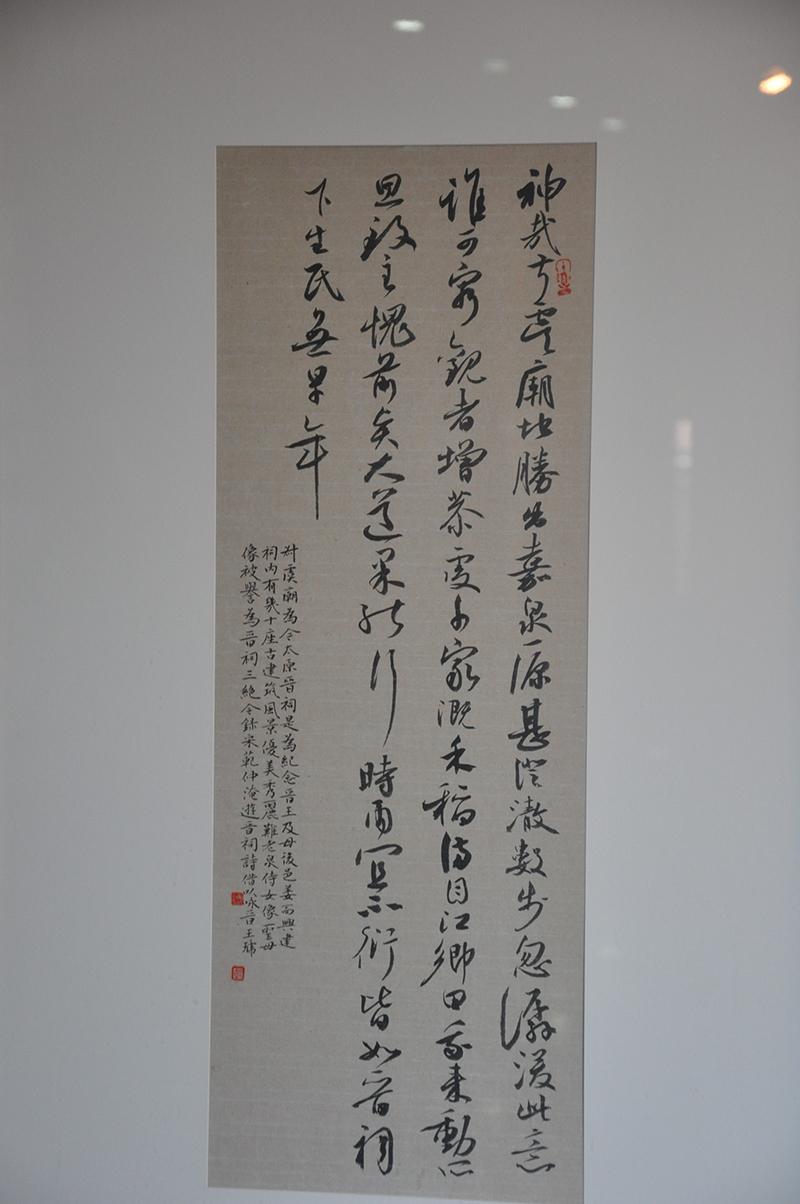 神哉叔虞廟地勝出嘉泉一源甚澄澈數步忽潺湲此意
誰可窮觀者增恭虔万家溉禾稻滿目江鄉田我來動所
思致主愧前賢大道果能行時雨宜不衍皆如晉祠
下生民無旱年
叔虞廟為今太原晉祠是為紀念晉王及母後邑姜而興建
祠內有幾十座古建筑風景優美秀麗難老泉侍女像聖母
像被譽為晉祠三絕今錄宋範仲淹遊晉祠詩借以咏晉王